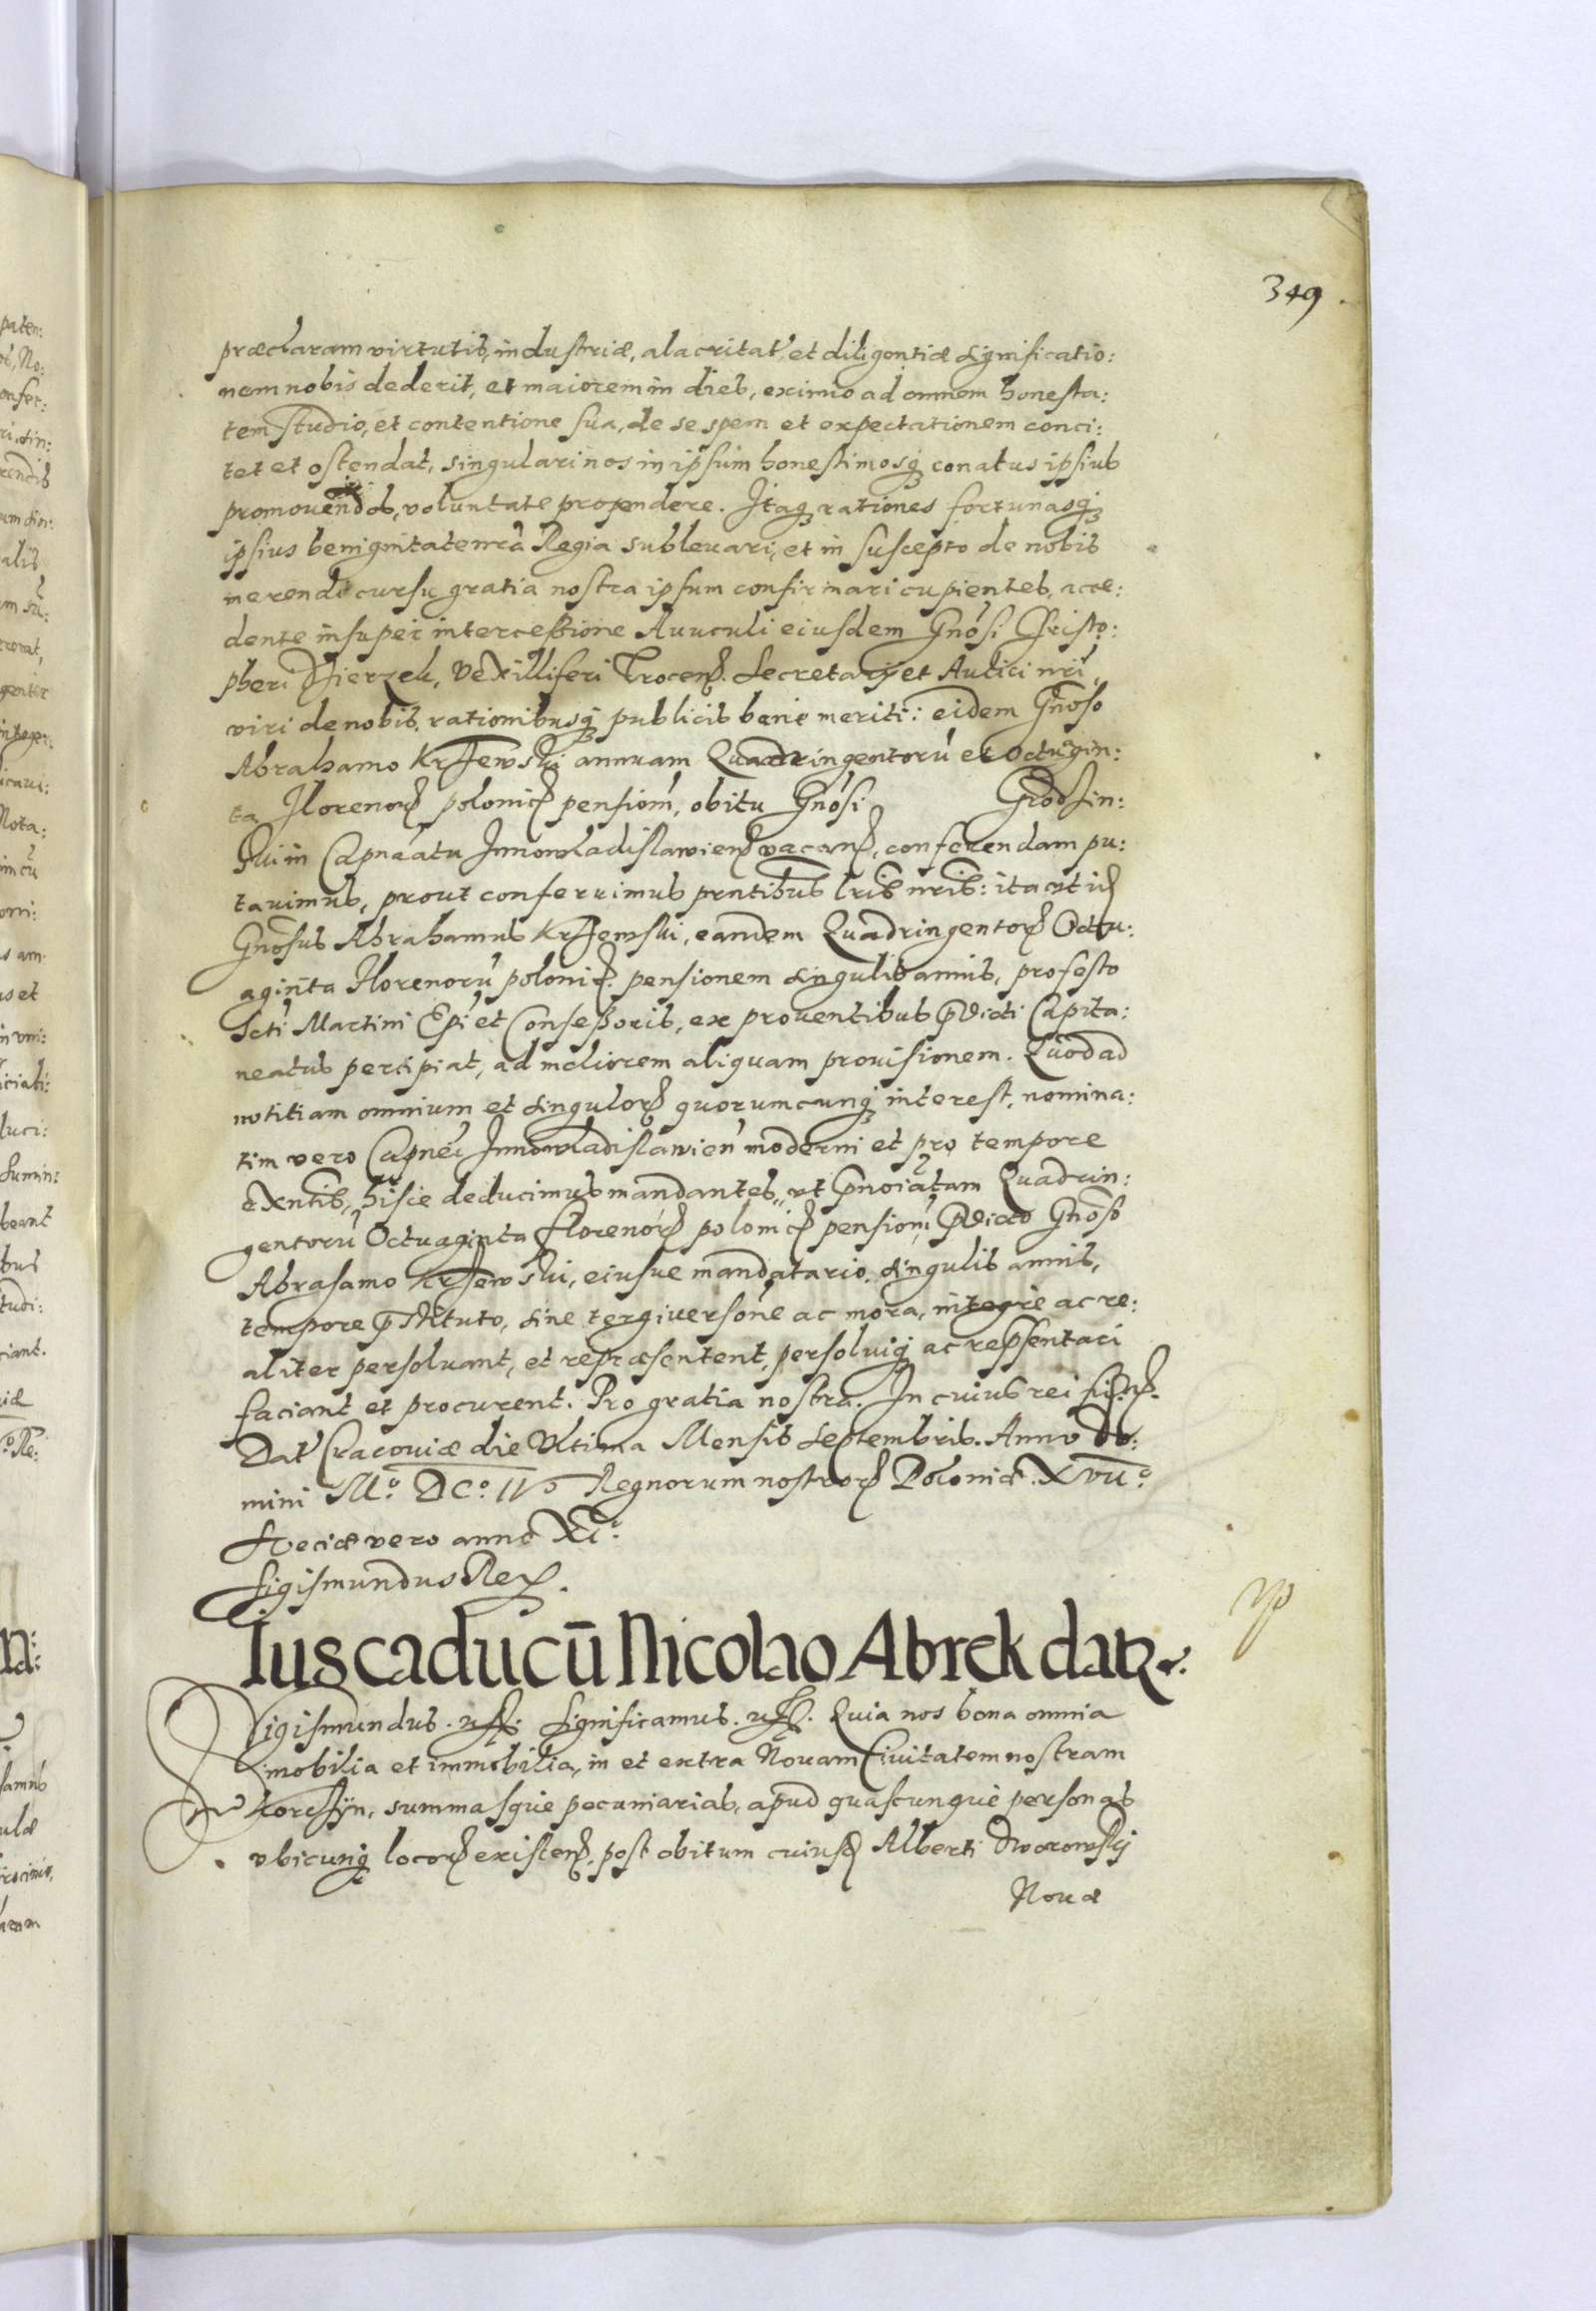 349
præclaram virtutis, industriæ, alacritat, et diligentiæ significatio:
nem nobis dederit, et maiorem in dies, eximio ad omnem honesta:
tem studio, et contentione sua, de se spem et expectationem conci:
tet et ostendat, singulari nos in ipsum honestimosq3 conatus ipsius
promouendos, voluntate propendere. Itaq3 rationes fortunasq3
ipsius benignitate Regia subleuari, et in suscepto de nobis
merendi cursu gratia nostra ipsum confirmari cupientes, acce:
dente insuper intercessione Auunculi eiusdem Gnosi Christo:
pheri Dzierzek, Vexilliferi Trocen. Secretarij et Aulici nri,
viri de nobis, rationibusq3 publicis bene meriti: eidem Gnoso
Abrahamo Krzewski annuam Quadringentoru et Octuagin:
ta Florenor polonic pensiom, obitu Gnosi Grodzin:
ski in Capneatu Innowladislawien vacan, conferendam pu:
tauimus, prout conferimus prntibus lris nris: ita ut id
Gnosus Abrahamus Krzewski, eandem Quadringentor Octu:
aginta Florenoru polonic pensionem singulis annis, pro festo
Scti Martini Epi et Confessoris, ex prouentibus pdicti Capita:
neatus percipiat, ad meliorem aliquam prouisionem. Quod ad
notitiam omnium et singulor quorumcunq3 interest, nomina:
tim vero Capnei Innowladislawien moderni et pro tempore
exntis, hisce deducimus mandantes, ut pnoiatam Quadrin:
gentoru Octuaginta Florenor polonic pensiom, pdicto Gnoso
Abrahamo Krzewski, eiusue mandatario, singulis annis,
tempore pstituto, sine tergiuersone ac mora, integre ac re:
aliter persoluant, et repræsentent, persoluiq3 ac repsentari
faciant et procurent. Pro gratia nostra. In cuius rei fid.
Dat Cracouiæ die Vltima Mensis Septembris. Anno Do:
mini Mo DCo IVo Regnorum nostror Poloniæ. XVIIo
Sueciæ vero anno XIo
Sigismundus Rex.
Ius caducū Nicolao Abrek datr
Sigismundus. Significamus. Quia nos bona omnia
mobilia et immobilia, in et extra Nouam Ciuitatem nostram
Korczyn, summasque pecuniarias, apud quascunque personas
vbicunq3 locor existen, post obitum cuiusd Alberti Dworowskij
Nouæ